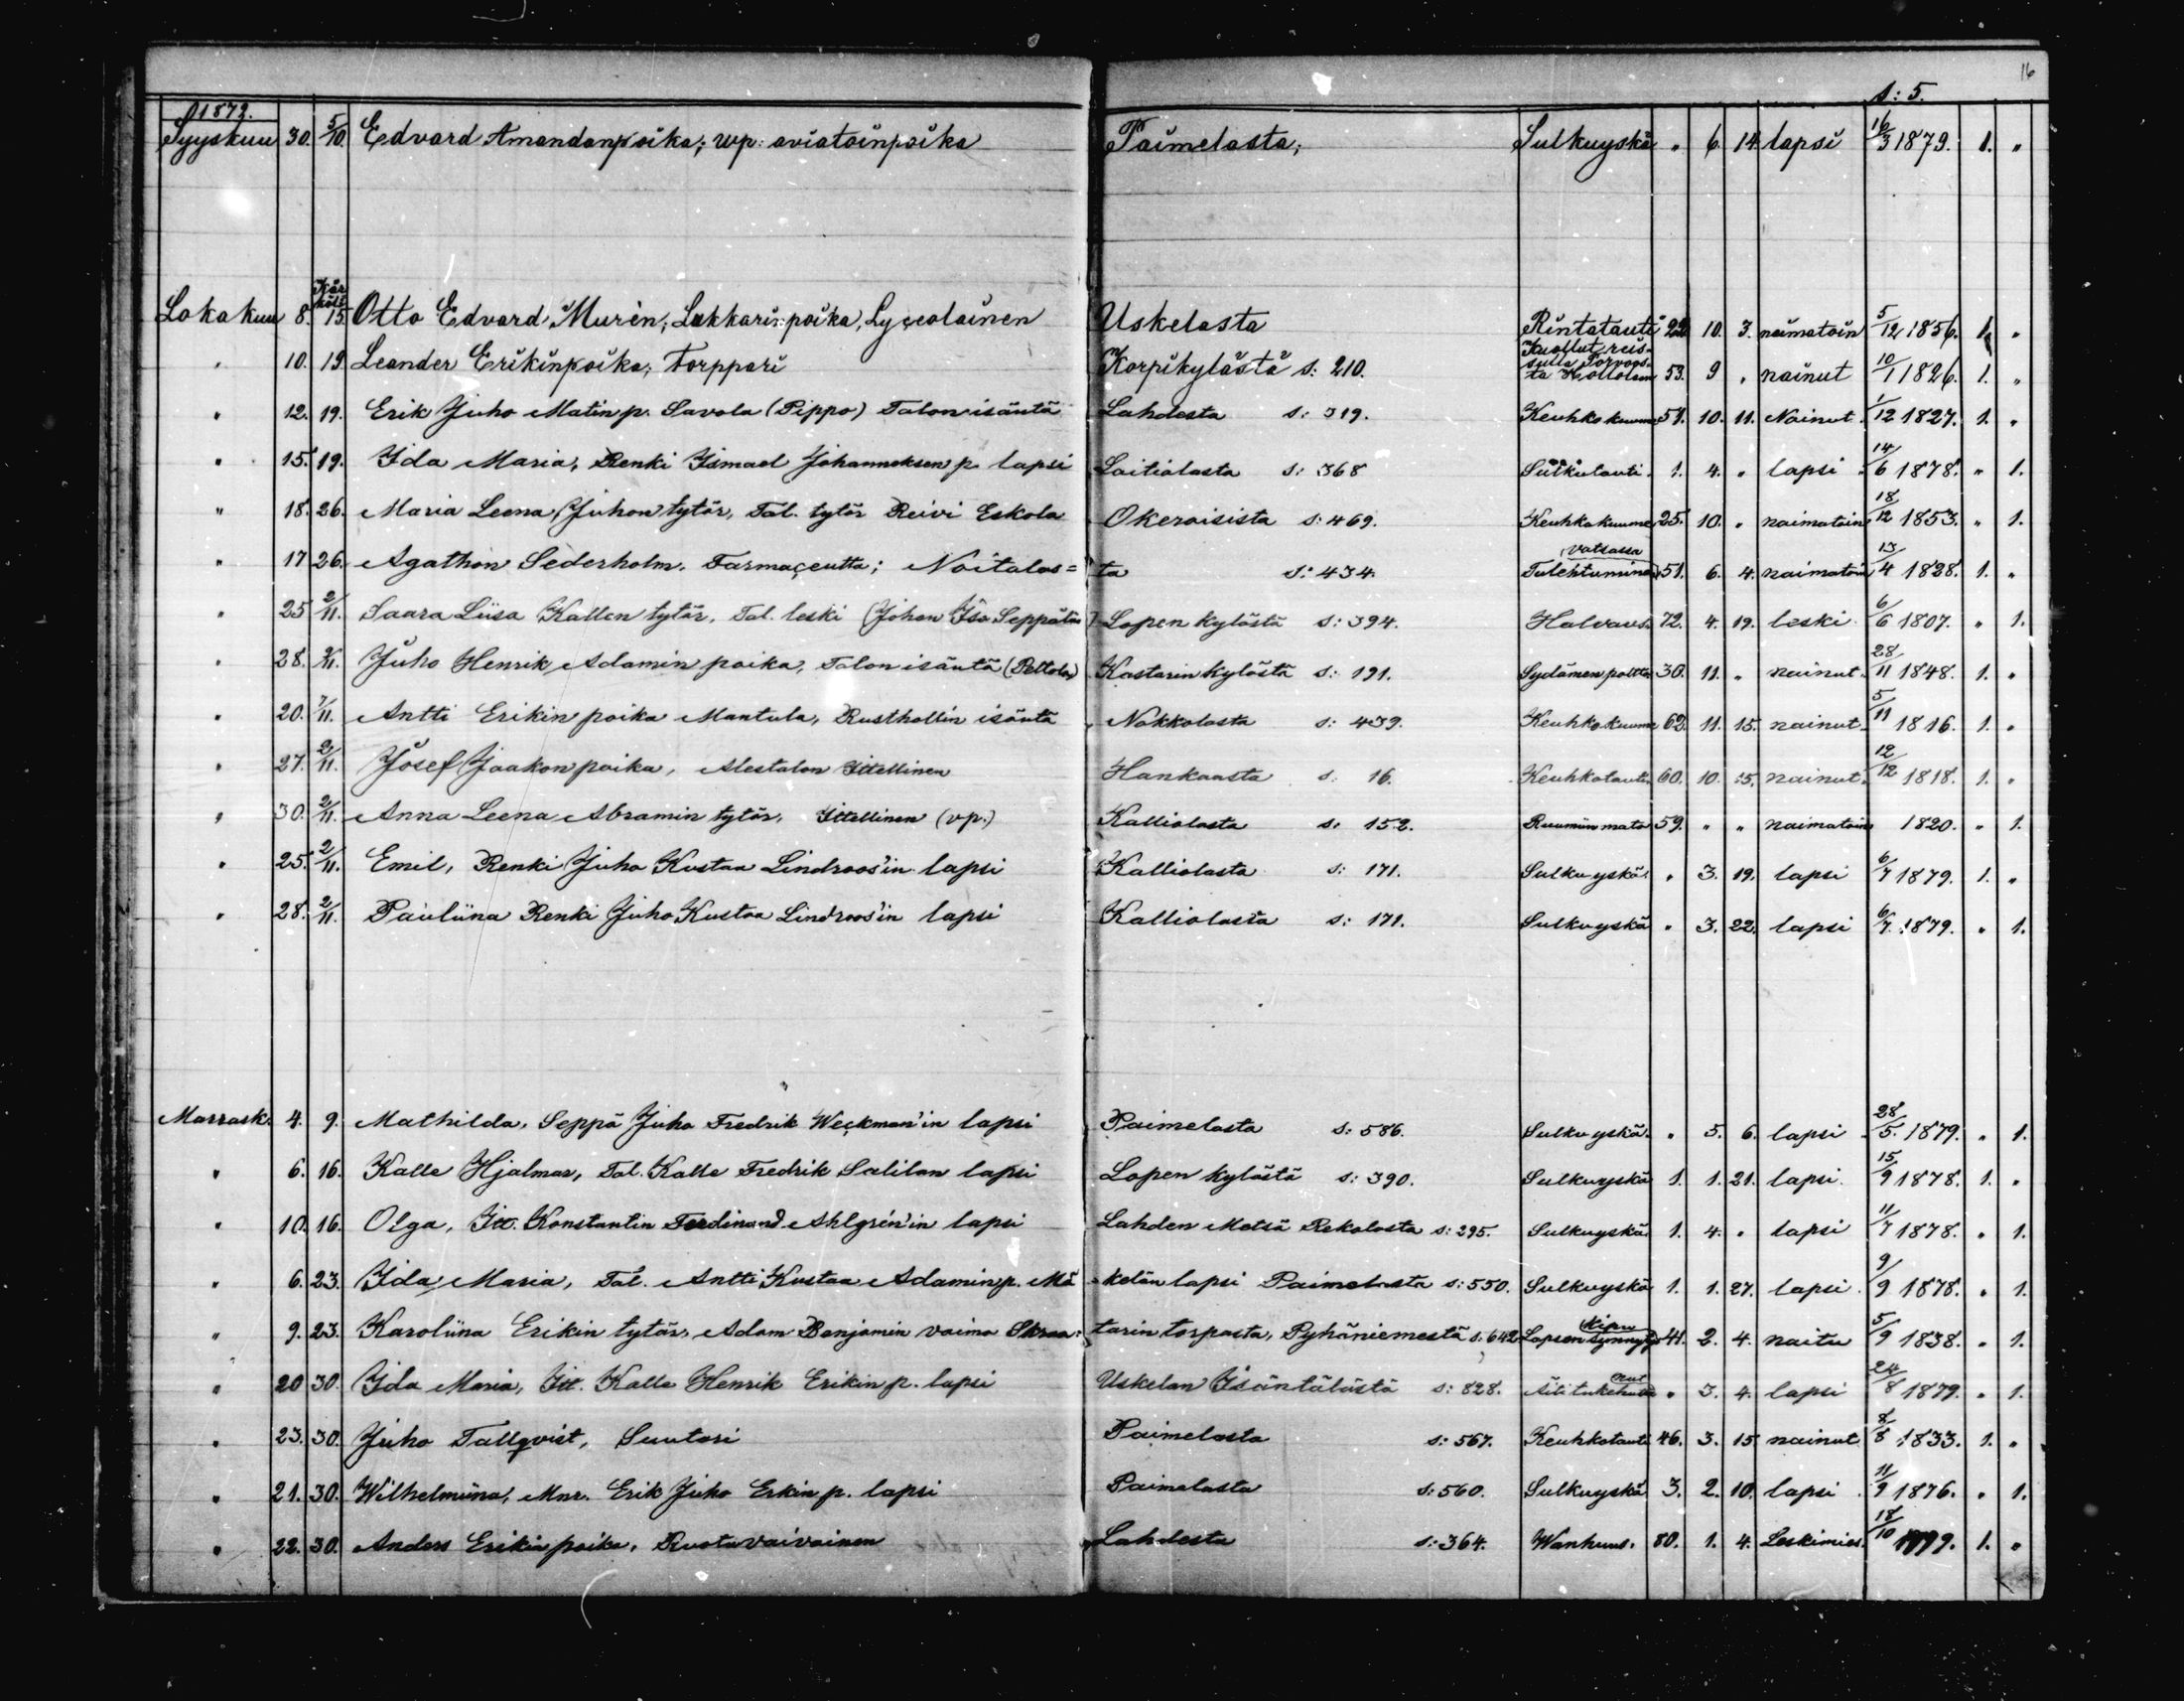 16
1879. s: 5.
Syyskuu 30. 5/10. Edvard Amandanpoika; wp: aviatoinpoika Paimelasta; Sulkuyskä " 6. 14. lapsi 16/3 1879. 1. "
Lokakuu 8. 15. Otto Edvard Murèn; Lukkarinpoika, Lyceolainen Uskelasta Rintatauti 22. 10. 3. naimatoin 5/12 1856. 1. "
" 10. 19. Leander Erikinpoika; Torppari Korpikylästä s: 210. Kuollut reissulla Porvoosta Hollolaan 53. 9 " nainut 10/1 1826. 1. "
" 12. 19. Erik Juho Matinp. Savola (Pippo) Talon isäntä Lahdesta s: 319. Keuhkokuume 51. 10. 11. Nainut 1/12 1827. 1. "
" 15. 19. Ida Maria, Renki Ismael Johanneksen p. lapsi Laitialasta s: 368 Sulkutauti 1. 4. " lapsi 14/6 1878. " 1.
" 18. 26. Maria Leena Juhon tytär, Tal. tytär Reivi Eskola Okeroisista s: 469. Keuhkokuume 25. 10. " naimatoin 18/12 1853. " 1.
" 17 26. Agathon Sederholm. Farmaçeutta; Noitalas= ta s: 434. vatsassa Tulehtuminen 51. 6. 4. naimatoin 13/4 1828. 1. "
" 25 2/11. Saara Liisa Kallen tytär, Tal. leski (Johan Iso Seppälän) Lopen kylästä s: 394. Halvaus. 72. 4. 19. leski 6/6 1807. " 1.
" 28. 2/11. Juho Henrik Adamin poika, Talon isäntä (Peltola) Kastarin kylästä s: 191. Sydämen poltto 30. 11. " nainut 28/11 1848. 1. "
" 20. 7/11. Antti Erikin poika Mantula, Rusthollin isäntä Nokkolasta s: 439. Keuhkokuume 62. 11. 15. nainut 5/11 1816. 1. "
" 27. 2/11. Josef Jaakon poika, Alestalon Itellinen Hankaasta s: 16. Keuhkotauti 60. 10. 15. nainut. 12/12 1818. 1. "
" 30. 2/11. Anna Leena Abramin tytär, Itellinen (vp.) Kalliolasta s. 152. Ruumiin mato 59. " " naimatoin 1820. " 1.
" 25. 2/11. Emil, Renki Juho Kustaa Lindroos'in lapsi Kalliolasta s: 171. Sulkuyskä " 3. 19. lapsi 6/7 1879. 1. "
" 28. 2/11. Pauliina Renki Juho Kustaa Lindroos'in lapsi Kalliolasta s: 171. Sulkuyskä " 3. 22. lapsi 6/7. 1879. " 1.
Marrask. 4. 9. Mathilda, Seppä Juho Fredrik Weckman'in lapsi Paimelasta s: 586. Sulkuyskä " 5. 6. lapsi 28/5. 1879. " 1.
" 6. 16. Kalle Hjalmar, Tal. Kalle Fredrik Salilan lapsi Lopen kylästä s: 390. Sulkuyskä 1. 1. 21. lapsi 15/9 1878. 1. "
" 10. 16. Olga, Itt. Konstantin Ferdinand Ahlgrén'in lapsi Lahden Metsä Pekolasta s: 295. Sulkuyskä 1. 4. " lapsi 11/7 1878. " 1.
" 6. 23. Ida Maria, Tal. Antti Kustaa Adamin p. Mä kelän lapsi Paimelasta s: 550. Sulkuyskä 1. 1. 27. lapsi 9/9 1878. " 1.
" 9. 23. Karoliina Erikin tytär, Adam Benjamin vaimo Skraa: tarin torpasta, Pyhäniemestä s. 642 Lapsen synnytys Kipu 41. 2. 4. naitu 5/9 1838. " 1.
" 20 30. Ida Maria, Itt. Kalle Henrik Erikin p. lapsi Uskelan Isäntälästä s: 828. Äiti tukehut " 3. 4. lapsi 24/8 1879. " 1.
" 23. 30. Juho Tallqvist, Suutari Paimelasta s: 567. Keuhkotauti 46. 3. 15 nainut 8/8 1833. 1. "
" 21. 30. Wilhelmiina, Mnr. Erik Juho Erkin p. lapsi Paimelasta s: 560. Sulkuyskä 3. 2. 10. lapsi 11/9 1876. " 1.
" 22. 30. Anders Erikin poika, Ruotuvaivainen Lahdesta s: 364. Wanhuus. 80. 1. 4. Leskimies. 18/10 1799. 1. "